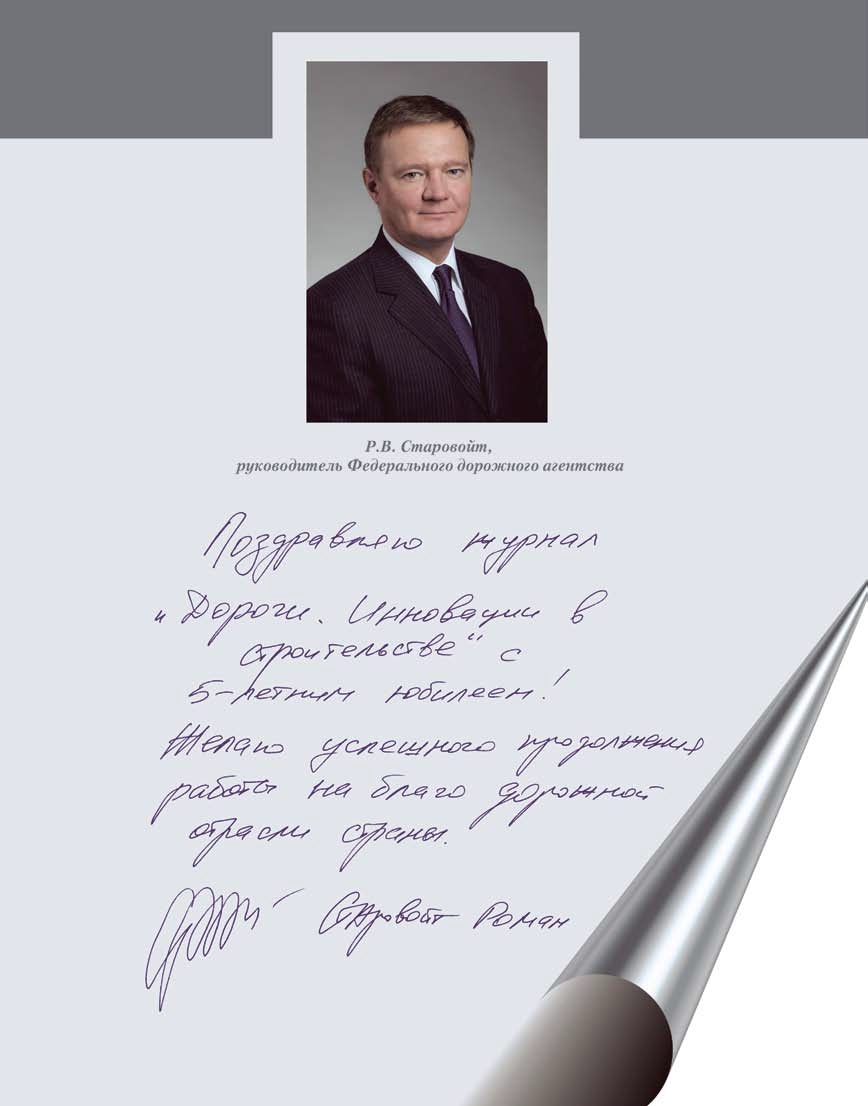 Р.В. Старовойт,
руководитель Федерального дорожного агентства
Поздравляю журнал
"Дороги. Инновации в
строительстве" с
5-летним юбилеем!
Желаю успешного продолжения
работы на благо дорожной
отрасли страны.
Старовойт Роман